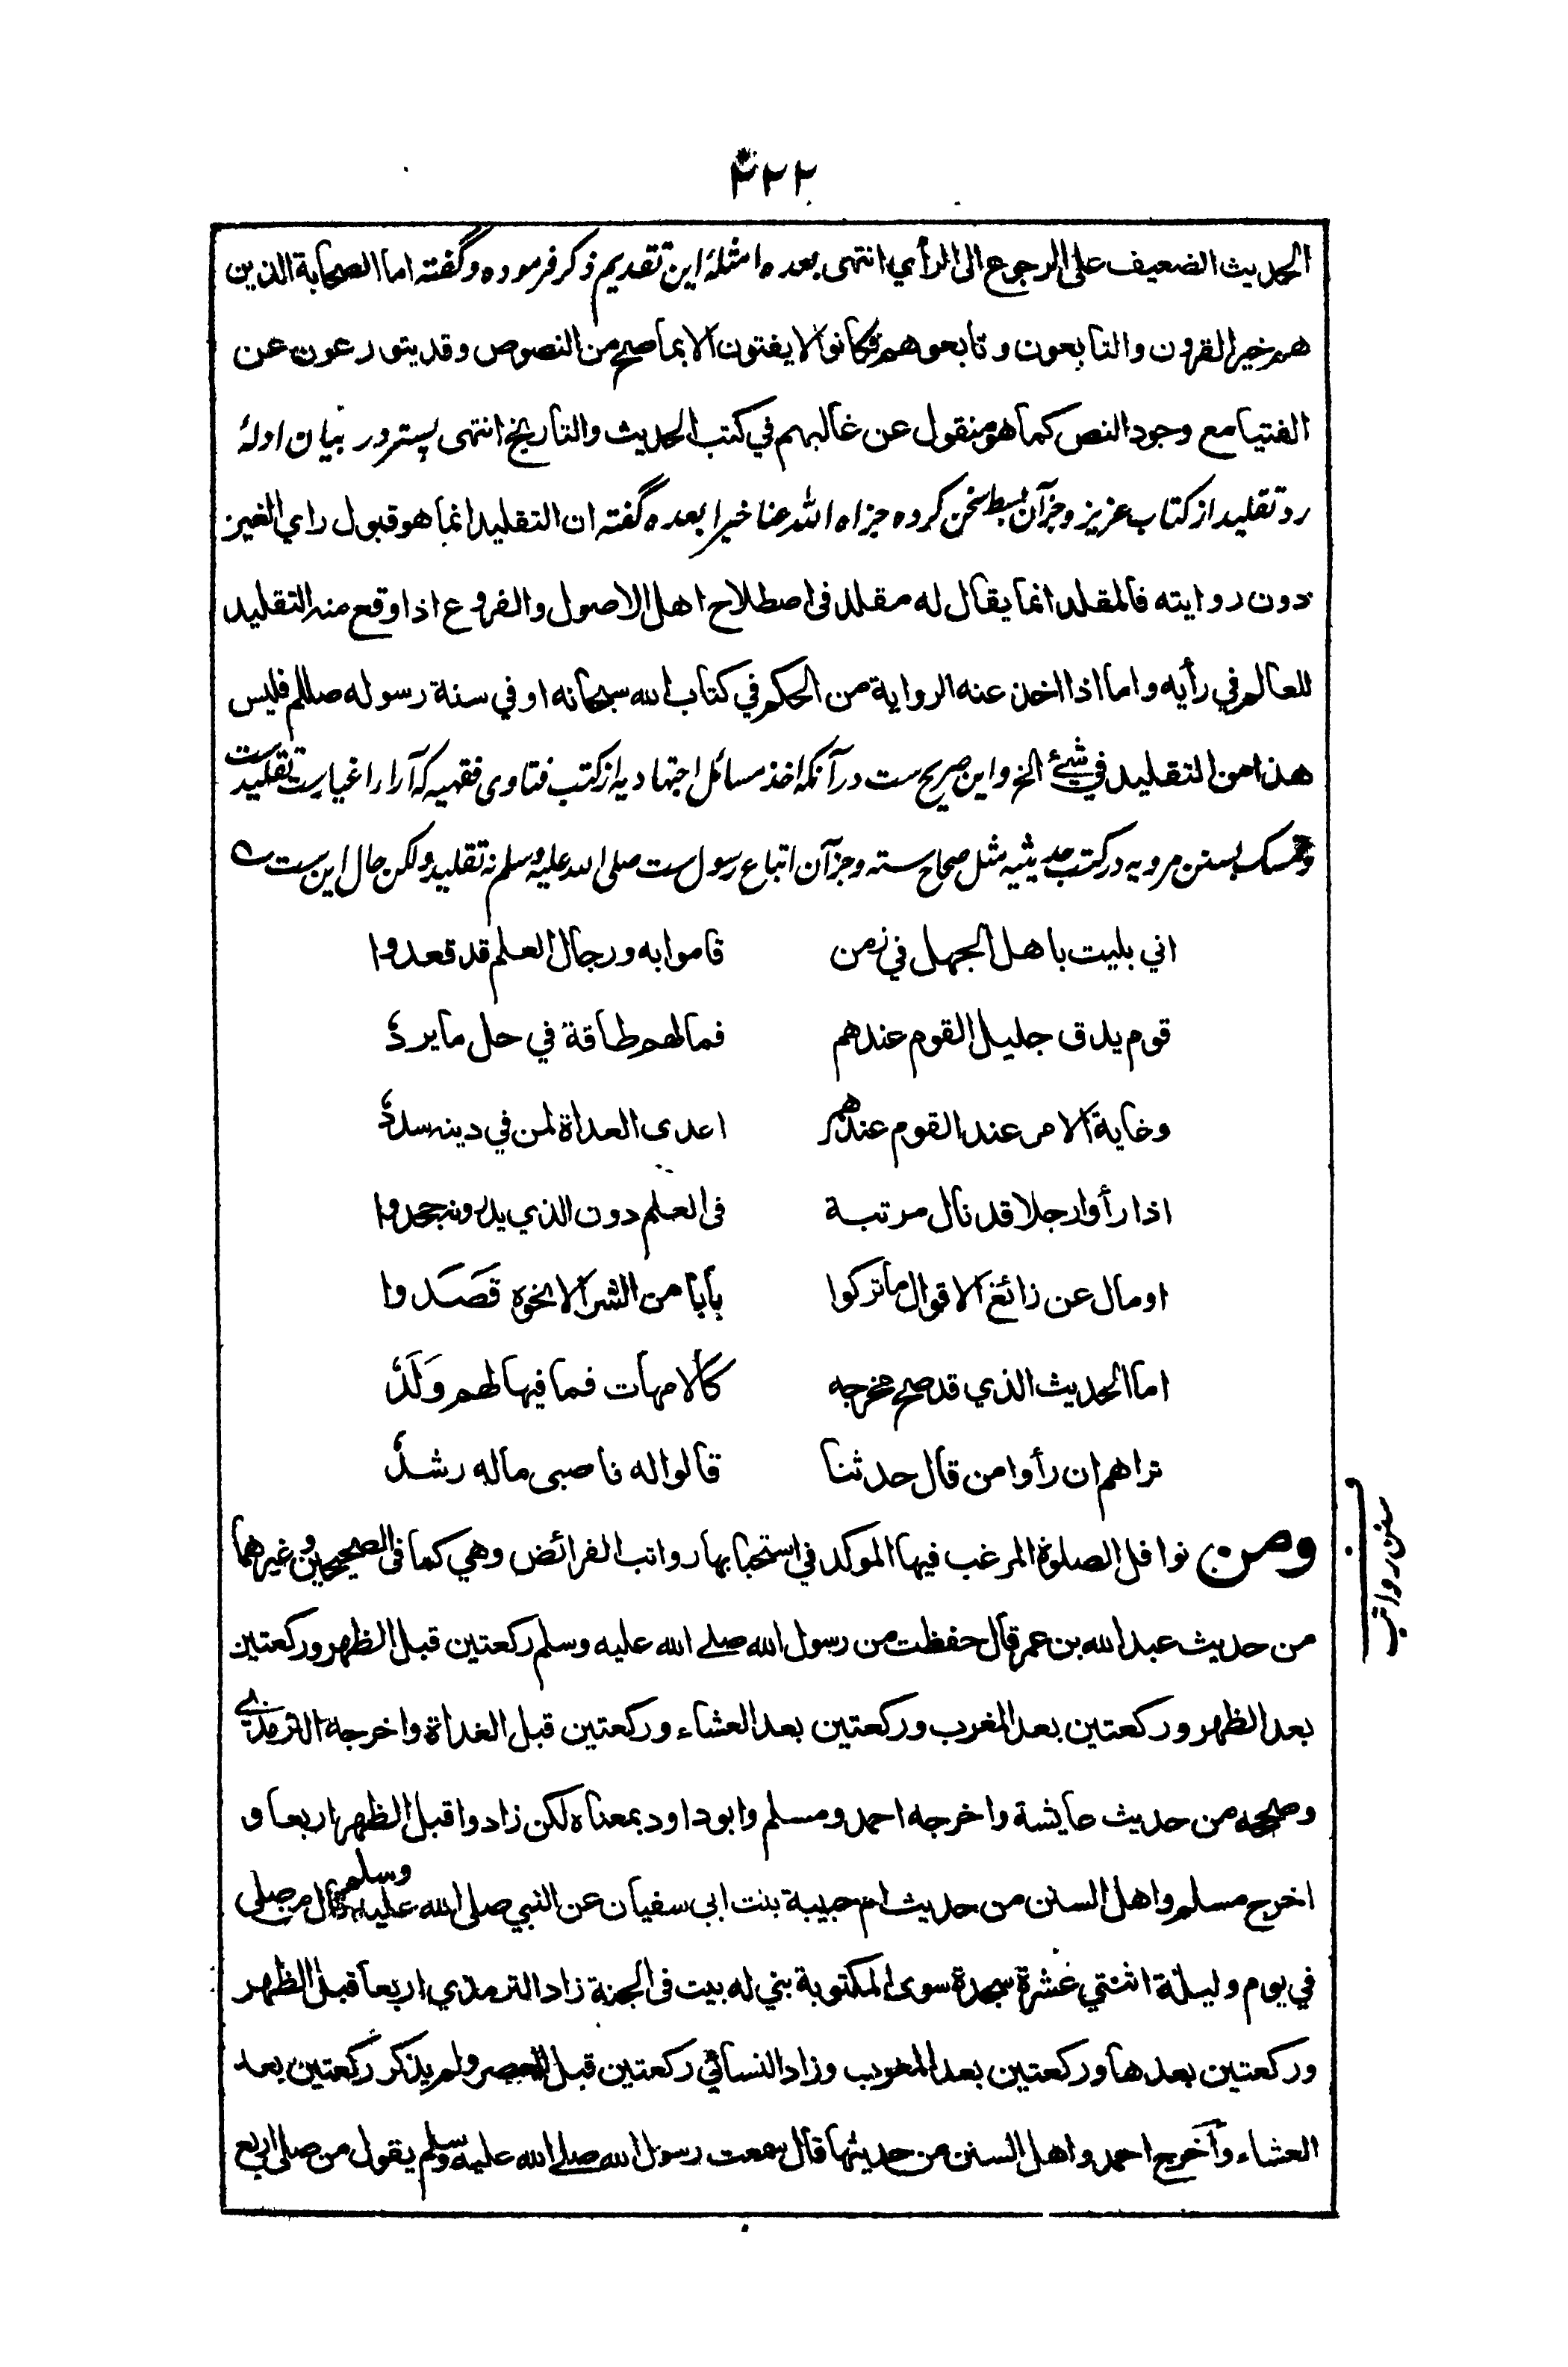 ۴۲۲
الحديث الضعيف على الرجوع الى الرأي انتهى بعده امثلهٔ این تقدیم ذکر فرموده و گفته اما الصحابة الذين
هم خير القرون والتابعون وتابعوهم فكانوا لا يفتون الا بما صح من النصوص وقد يتورعون عن
الفتيا مع وجود النص كما هو منقول عن غالبهم في كتب الحديث والتاريخ انتهى پستر در بیان ادلهٔ
رد تقلید از کتاب عزیز و جزآن بسط سخن کرده جزاه الله عنا خيرا بعده گفته ان التقليد انما هو قبول راي الغير
دون روايته فالمقلد انما يقال له مقلد فى اصطلاح اهل الاصول والفروع اذا وقع منه التقليد
للعالم في رأيه واما اذا اخذ عنه الرواية من الحكم في كتاب الله سبحانه او في سنة رسوله صللم فليس
هذا من التقليد في شيئ الخ و این صریح ست در آنکه اخذ مسائل اجتهادیه از کتب فتاوی فقهیه که آرا اغیارست تقلیدست
و تمسک بسنن مرویه در کتب حدیثیه مثل صحاح سته و جزآن اتباع رسول ست صلی الله علیه وسلم نه تقلید و لکن حال این ست ؎
اني بليت باهل الجهل في زمن قاموا به ورجال العلم قد قعدوا
قوم يدق جليل القوم عندهم فما لهم طاقة في حل ما يردُ
وغاية الامر عند القوم عندهم اعدى العداة لمن في دينه سددُ
اذا رأوا رجلا قد نال مرتبة فى العلم دون الذي يدرونه جحدوا
او مال عن زائغ الاقوال ما تركوا بابا من الشر الا نحوه قَصَدوا
اما الحديث الذي قد صح مخرجه كالامهات فما فيها لهم وَلَدُ
تراهم ان رأوا من قال حدثنا قالوا له ناصبى ماله رشدُ
ومن نوافل الصلوة المرغب فيها الموكد في استحبابها رواتب الفرائض وهي كما فى الصحيحين وغيرهما
سنن رواتب
من حديث عبد الله بن عمر قال حفظت من رسول الله صلے الله عليه وسلم ركعتين قبل الظهر وركعتين
بعد الظهر وركعتين بعد المغرب وركعتين بعد العشاء وركعتين قبل الغداة واخرجه الترمذي
وصححه من حديث عايشة واخرجه احمد ومسلم وابو داود بمعناه لكن زادوا قبل الظهر اربعا و
اخرج مسلم واهل السنن من حديث ام حبيبة بنت ابي سفيان عن النبي صلى الله عليه وسلم قال من صلى
في يوم وليلة اثنتي عشرة سجدة سوى المكتوبة بني له بيت فى الجنة زاد الترمذي اربعا قبل الظهر
وركعتين بعدها وركعتين بعد المغرب وزاد النسائي ركعتين قبل العصر ولم يذكر ركعتين بعد
العشاء وأخرج احمد واهل السنن من حديثها قال سمعت رسول الله صلے الله عليه وسلم يقول من صلى اربع